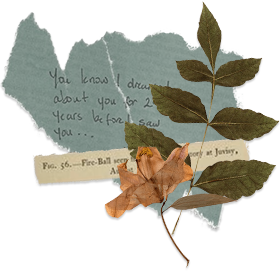 You know I dreamed
about you for 2
years before I saw
you...
FIG. 56.—Fire-Ball seen at Juvisy,